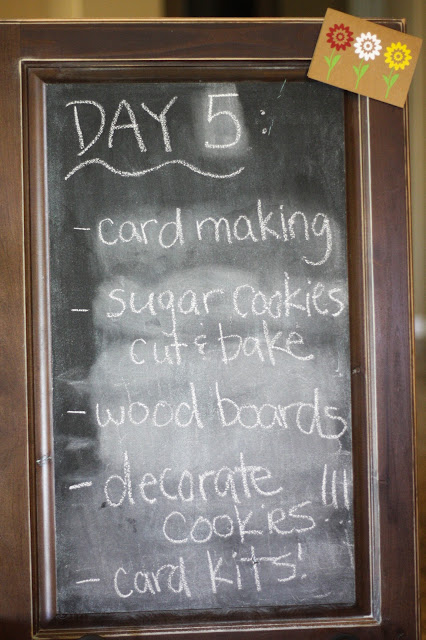 DAY 5:
- card making
- sugar cookies
cut & bake
- wood boards
- decorate !!!
cookies
- card kits!